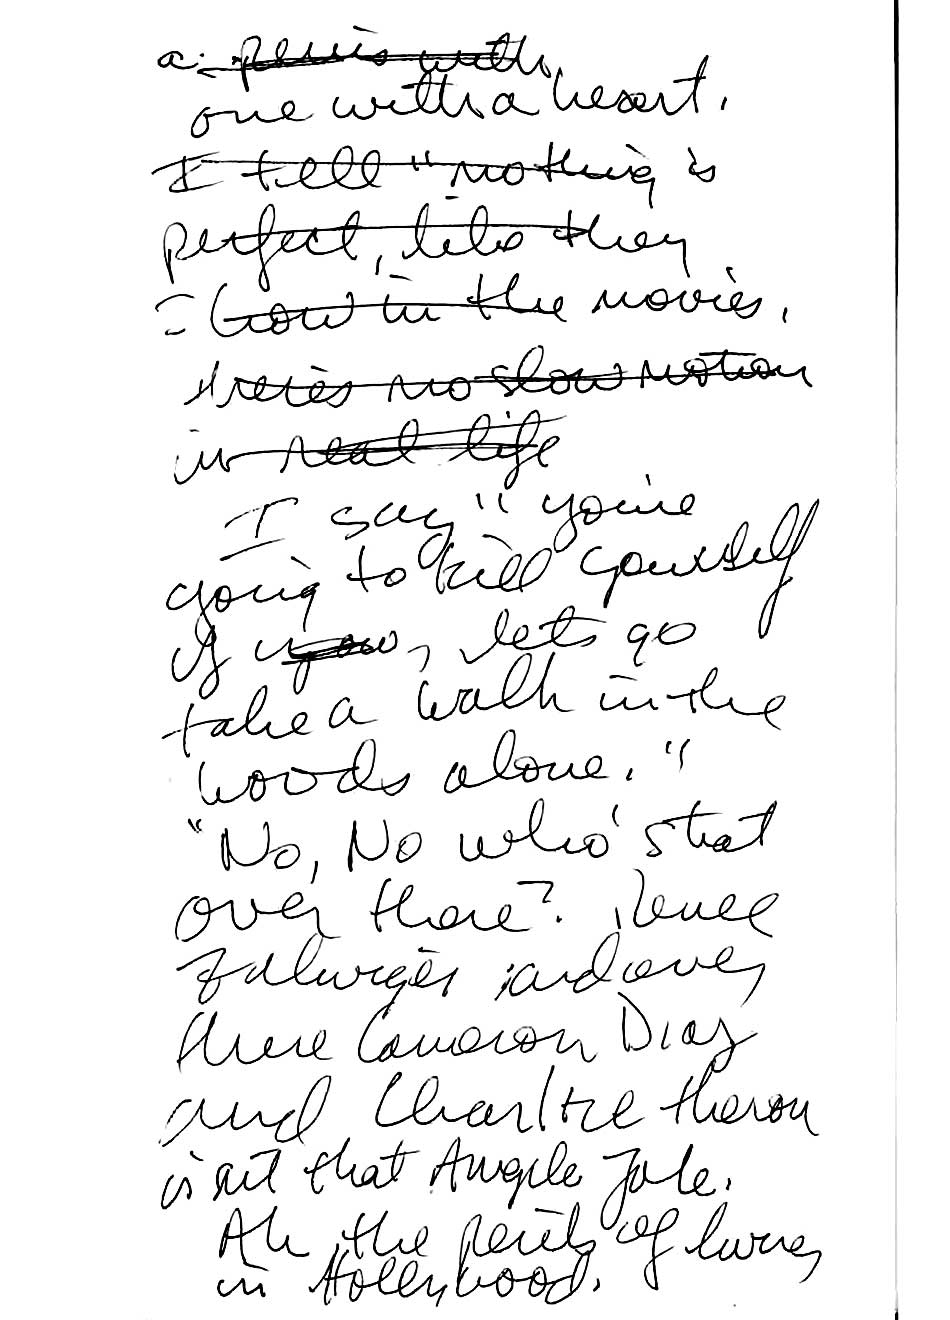 a penis with
one with a heart.
I tell "nothing is
perfect, like they
how in the movies.
there's no slow motion
in real life
I say "you're
going to kill yourself
if you, lets go
take a walk in the
woods alone."
"No, No who's that
over there? Renee
Zelwiger and over
there Cameron Diaz
and Charlize theron
isn't that Angele Jole.
Ah, the perils of living
in Hollywood.